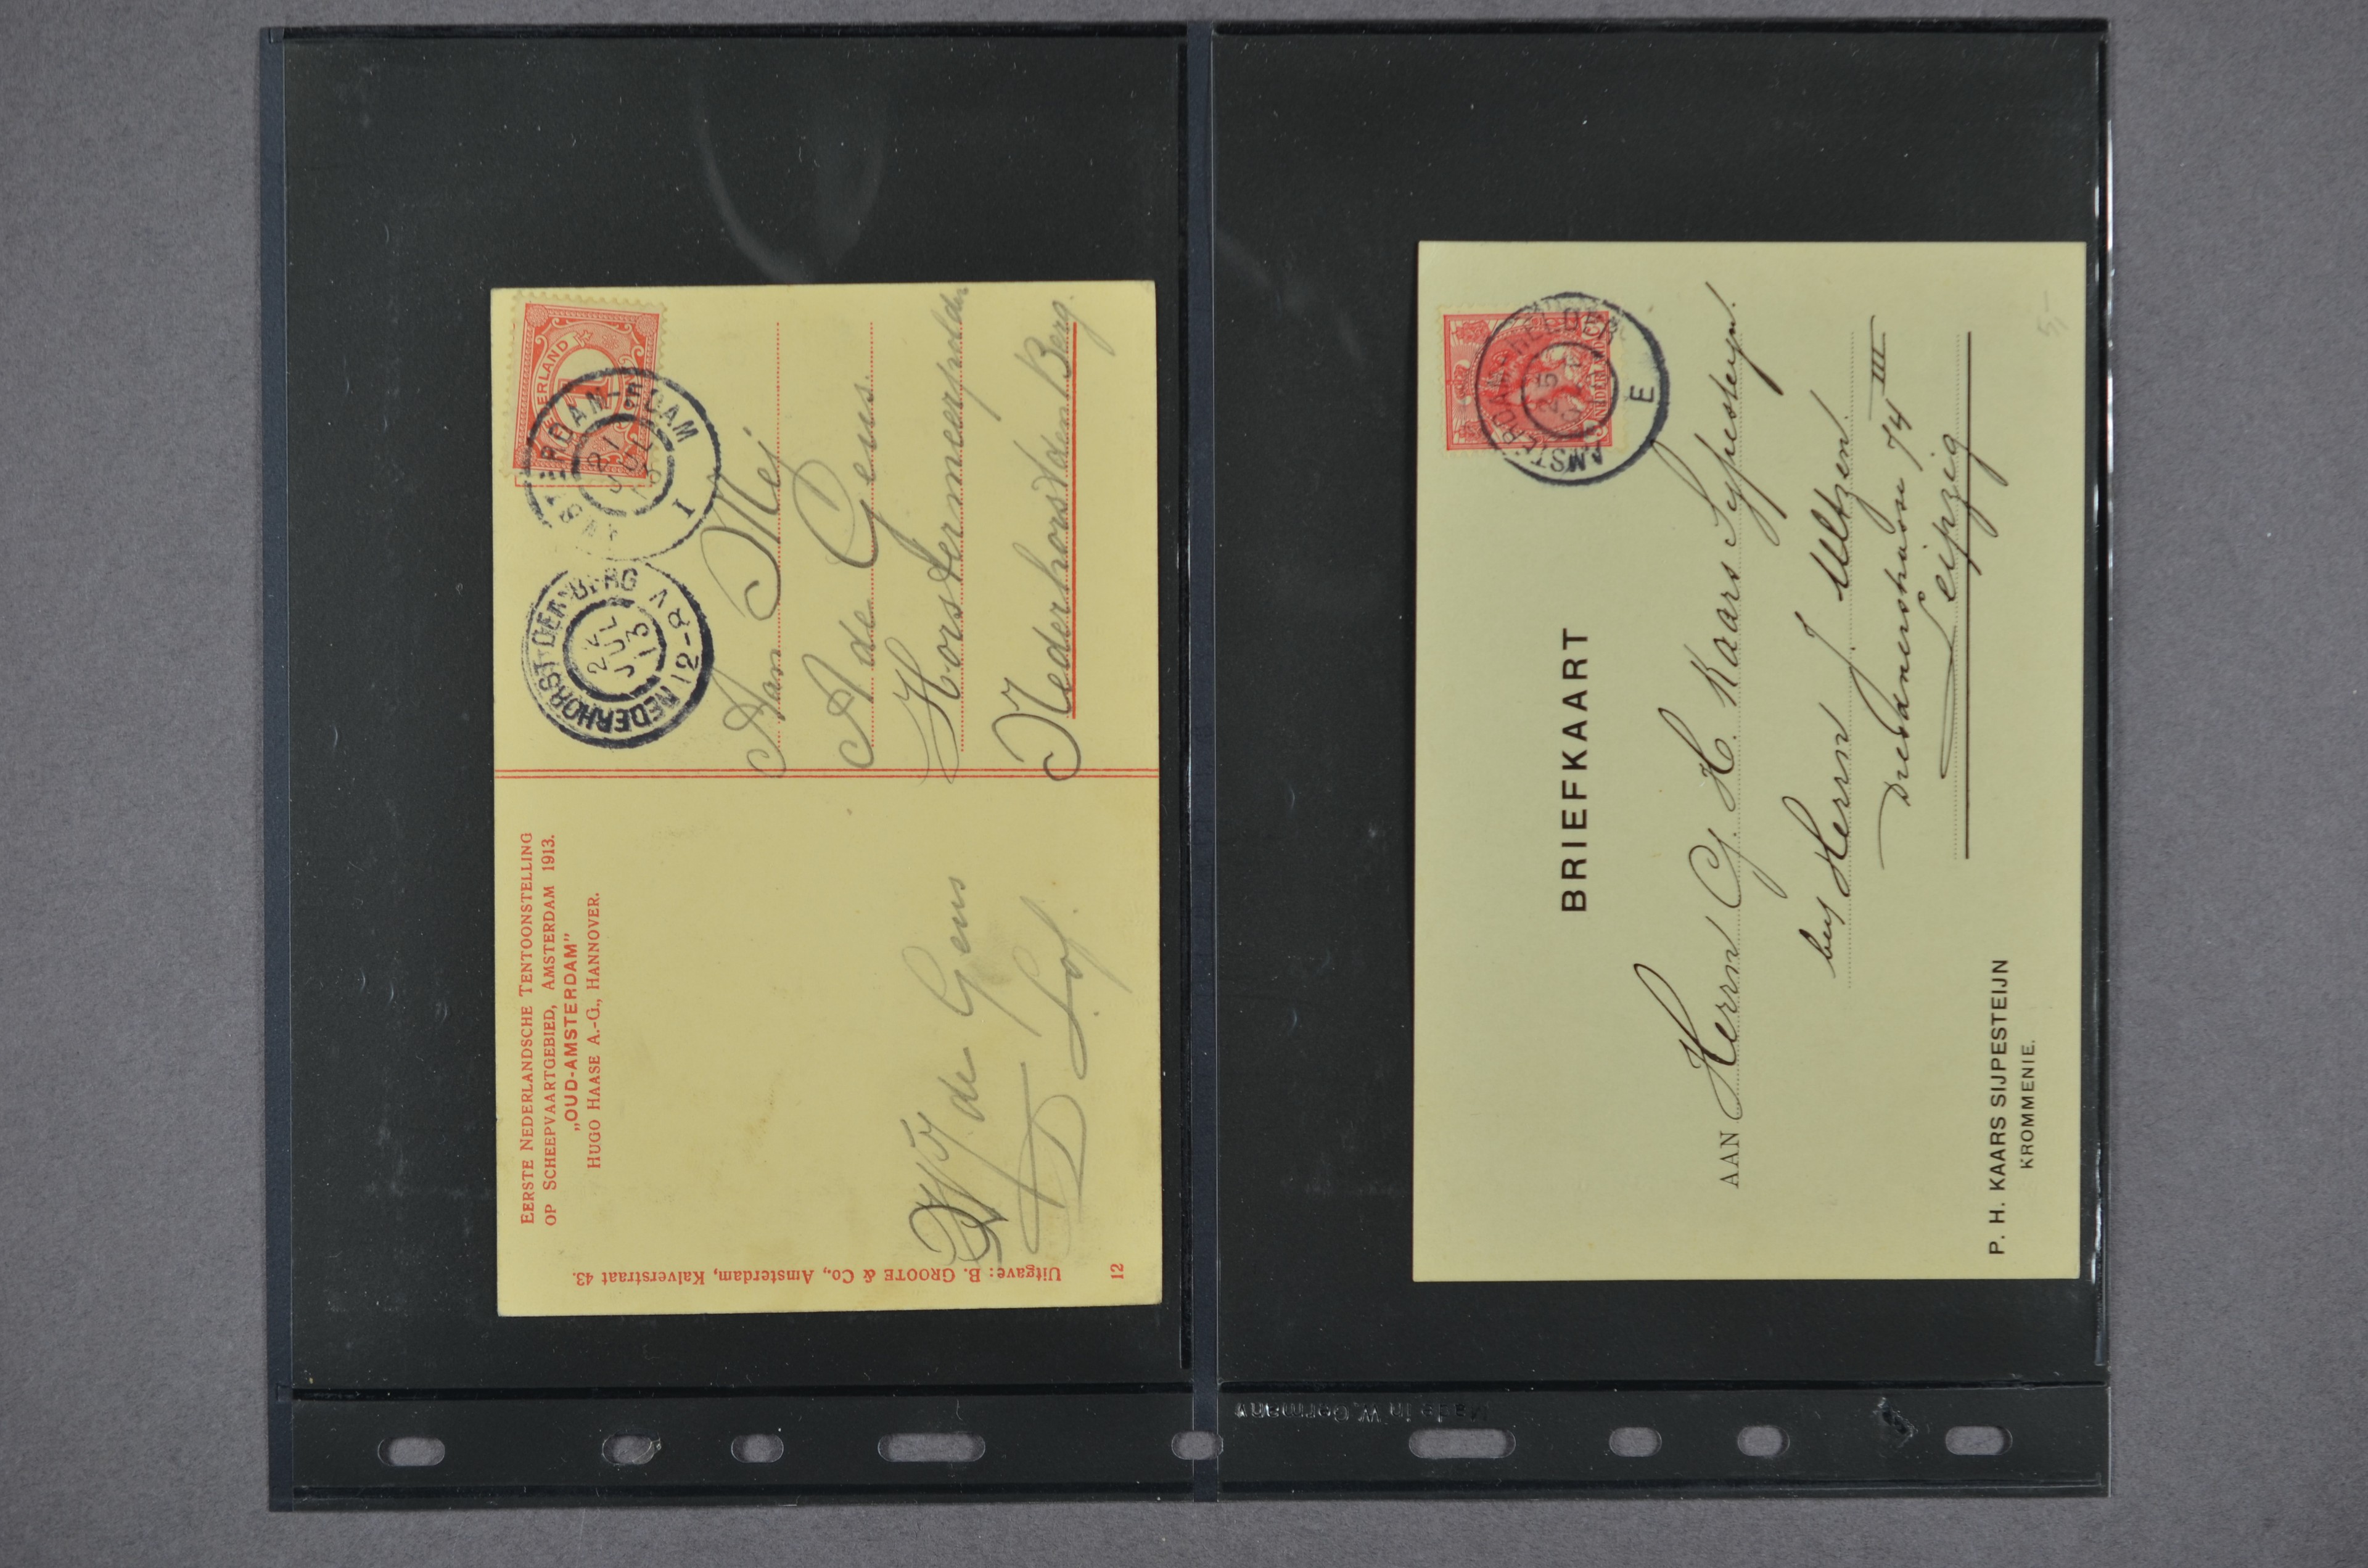 EERSTE NEDERLANDSCHE TENTOONSTELLING
OP SCHEEPVAARTGEBIED, AMSTERDAM 1913.
„OUD-AMSTERDAM”
HUGO HAASE A.-G., HANNOVER.
Uitgave: B. GROOTE & Co., Amsterdam, Kalverstraat 43.
12
de Gens
Lof.
NEDERLAND
1
I
NEDERHORST DEN BERG
JUL
13
12-8 V
Aan Mej
A de Gens.
Horstermeerpolder
Nederhorst den Berg.
BRIEFKAART
AMSTERDAM-HELDER
E
AAN Herrn Cj. H. Kaars Sypesteyn.
bey Herrn J. Ultzen
Dresdanerstrasse 74 III
Leipzig
P. H. KAARS SIJPESTEIJN
KROMMENIE.
5,-
Made in W. Germany